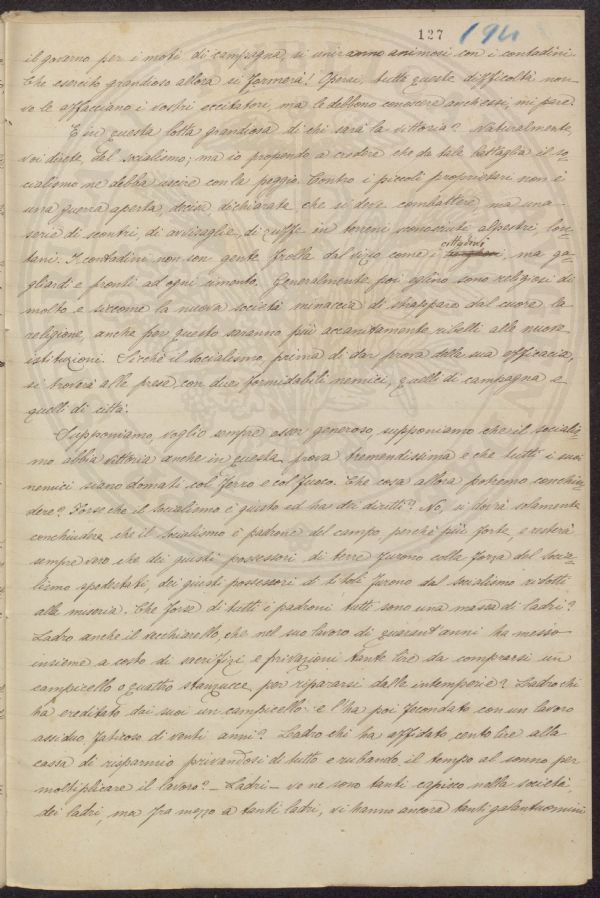 127 194
il governo per i moti di campagna, si uniranno animosi con i contadini.
Che esercito grandioso allora si formerà! Operai, tutte queste difficoltà non
ve le affacciano i vostri eccitatori, ma le debbono conoscere anch'essi, mi pare.
E in questa lotta grandiosa di chi sarà la vittoria? Naturalmente,
voi direte, del socialismo; ma io propendo a credere che da tale battaglia il so-
cialismo ne debba uscire con la peggio. Contro i piccoli proprietari non è
una guerra aperta, decisa, dichiarata che si deve combattere, ma una
serie di scontri, di avvisaglie, di zuffe in terreni sconosciuti, alpestri, lon-
tani. I contadini non son gente frolla dal vizio come i cittadini, ma ga-
gliardi e pronti ad ogni cimento. Generalmente poi eglino sono religiosi di
molto e siccome la nuova società minaccia di strappare dal cuore la
religione, anche per questo saranno più accanitamente ribelli alle nuove
istituzioni. Sicchè il socialismo, prima di dar prova della sua efficacia,
si troverà alle prese con due formidabili nemici, quelli di campagna e
quelli di città.
Supponiamo, voglio sempre esser generoso, supponiamo che il sociali-
smo abbia vittoria anche in questa prova tremendissima e che tutti i suoi
nemici siano domati col ferro e col fuoco. Che cosa allora potremo conchiu-
dere? Forse che il socialismo è giusto ed ha dei diritti? No, si dovrà solamente
conchiudere che il socialismo è padrone del campo perchè più forte, e resterà
sempre vero che dei giusti possessori di terre furono colla forza del socia-
lismo spodestati, dei giusti possessori di titoli furono dal socialismo ridotti
alla miseria. Che forse di tutti i padroni tutti sono una massa di ladri?
Ladro anche il vecchiarello, che nel suo lavoro di quarant'anni ha messo
insieme a costo di sacrifizi e privazioni tante lire da comprarsi un
campicello o quattro stanzucce per ripararsi dalle intemperie? Ladro chi
ha ereditato dai suoi un campicello e l'ha poi fecondato con un lavoro
assiduo faticoso di venti anni? Ladro chi ha affidato cento lire alla
cassa di risparmio privandosi di tutto e rubando il tempo al sonno per
moltiplicare il lavoro? – Ladri – ve ne sono tanti capisco nella società,
dei ladri, ma fra mezzo a tanti ladri, vi hanno ancora tanti galantuomini